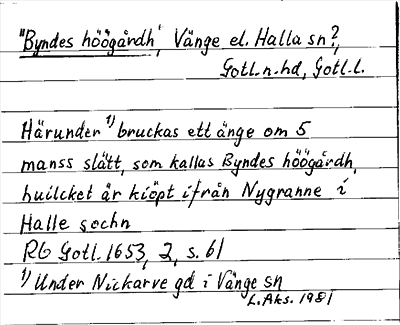 "Byndes höögårdh", Vänge el. Halla sn?,
Gotl. n. hd, Gotl. l.
Härunder 1) bruckas ett änge om 5
manss slått, som kallas Byndes höögårdh,
huilcket är kiöpt ifrån Nygranne i
Halle sochn
RB Gotl. 1653, 2, s. 61
1) Under Nickarve gd i Vänge sn
L. Aks. 1981